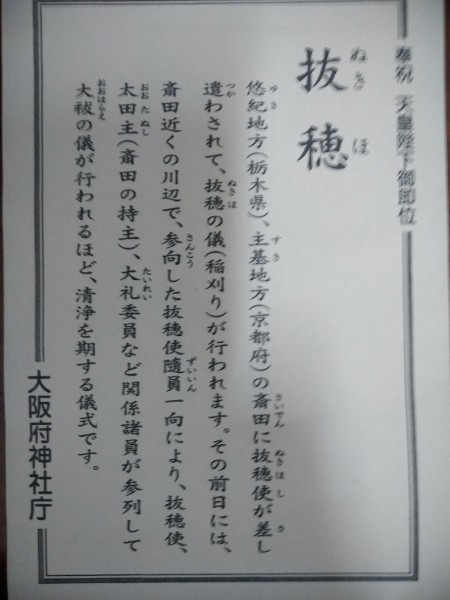 奉祝 天皇陛下御即位
抜穂
ぬきほ
悠紀地方(栃木県)、主基地方(京都府)の斎田に抜穂使が差し
遣わされて、抜穂の儀(稲刈り)が行われます。その前日には、
斎田近くの川辺で、参向した抜穂使隨員一向により、抜穂使、
太田主(斎田の持主)、大礼委員など関係諸員が参列して
大祓の儀が行われるほど、清浄を期する儀式です。
大阪府神社庁